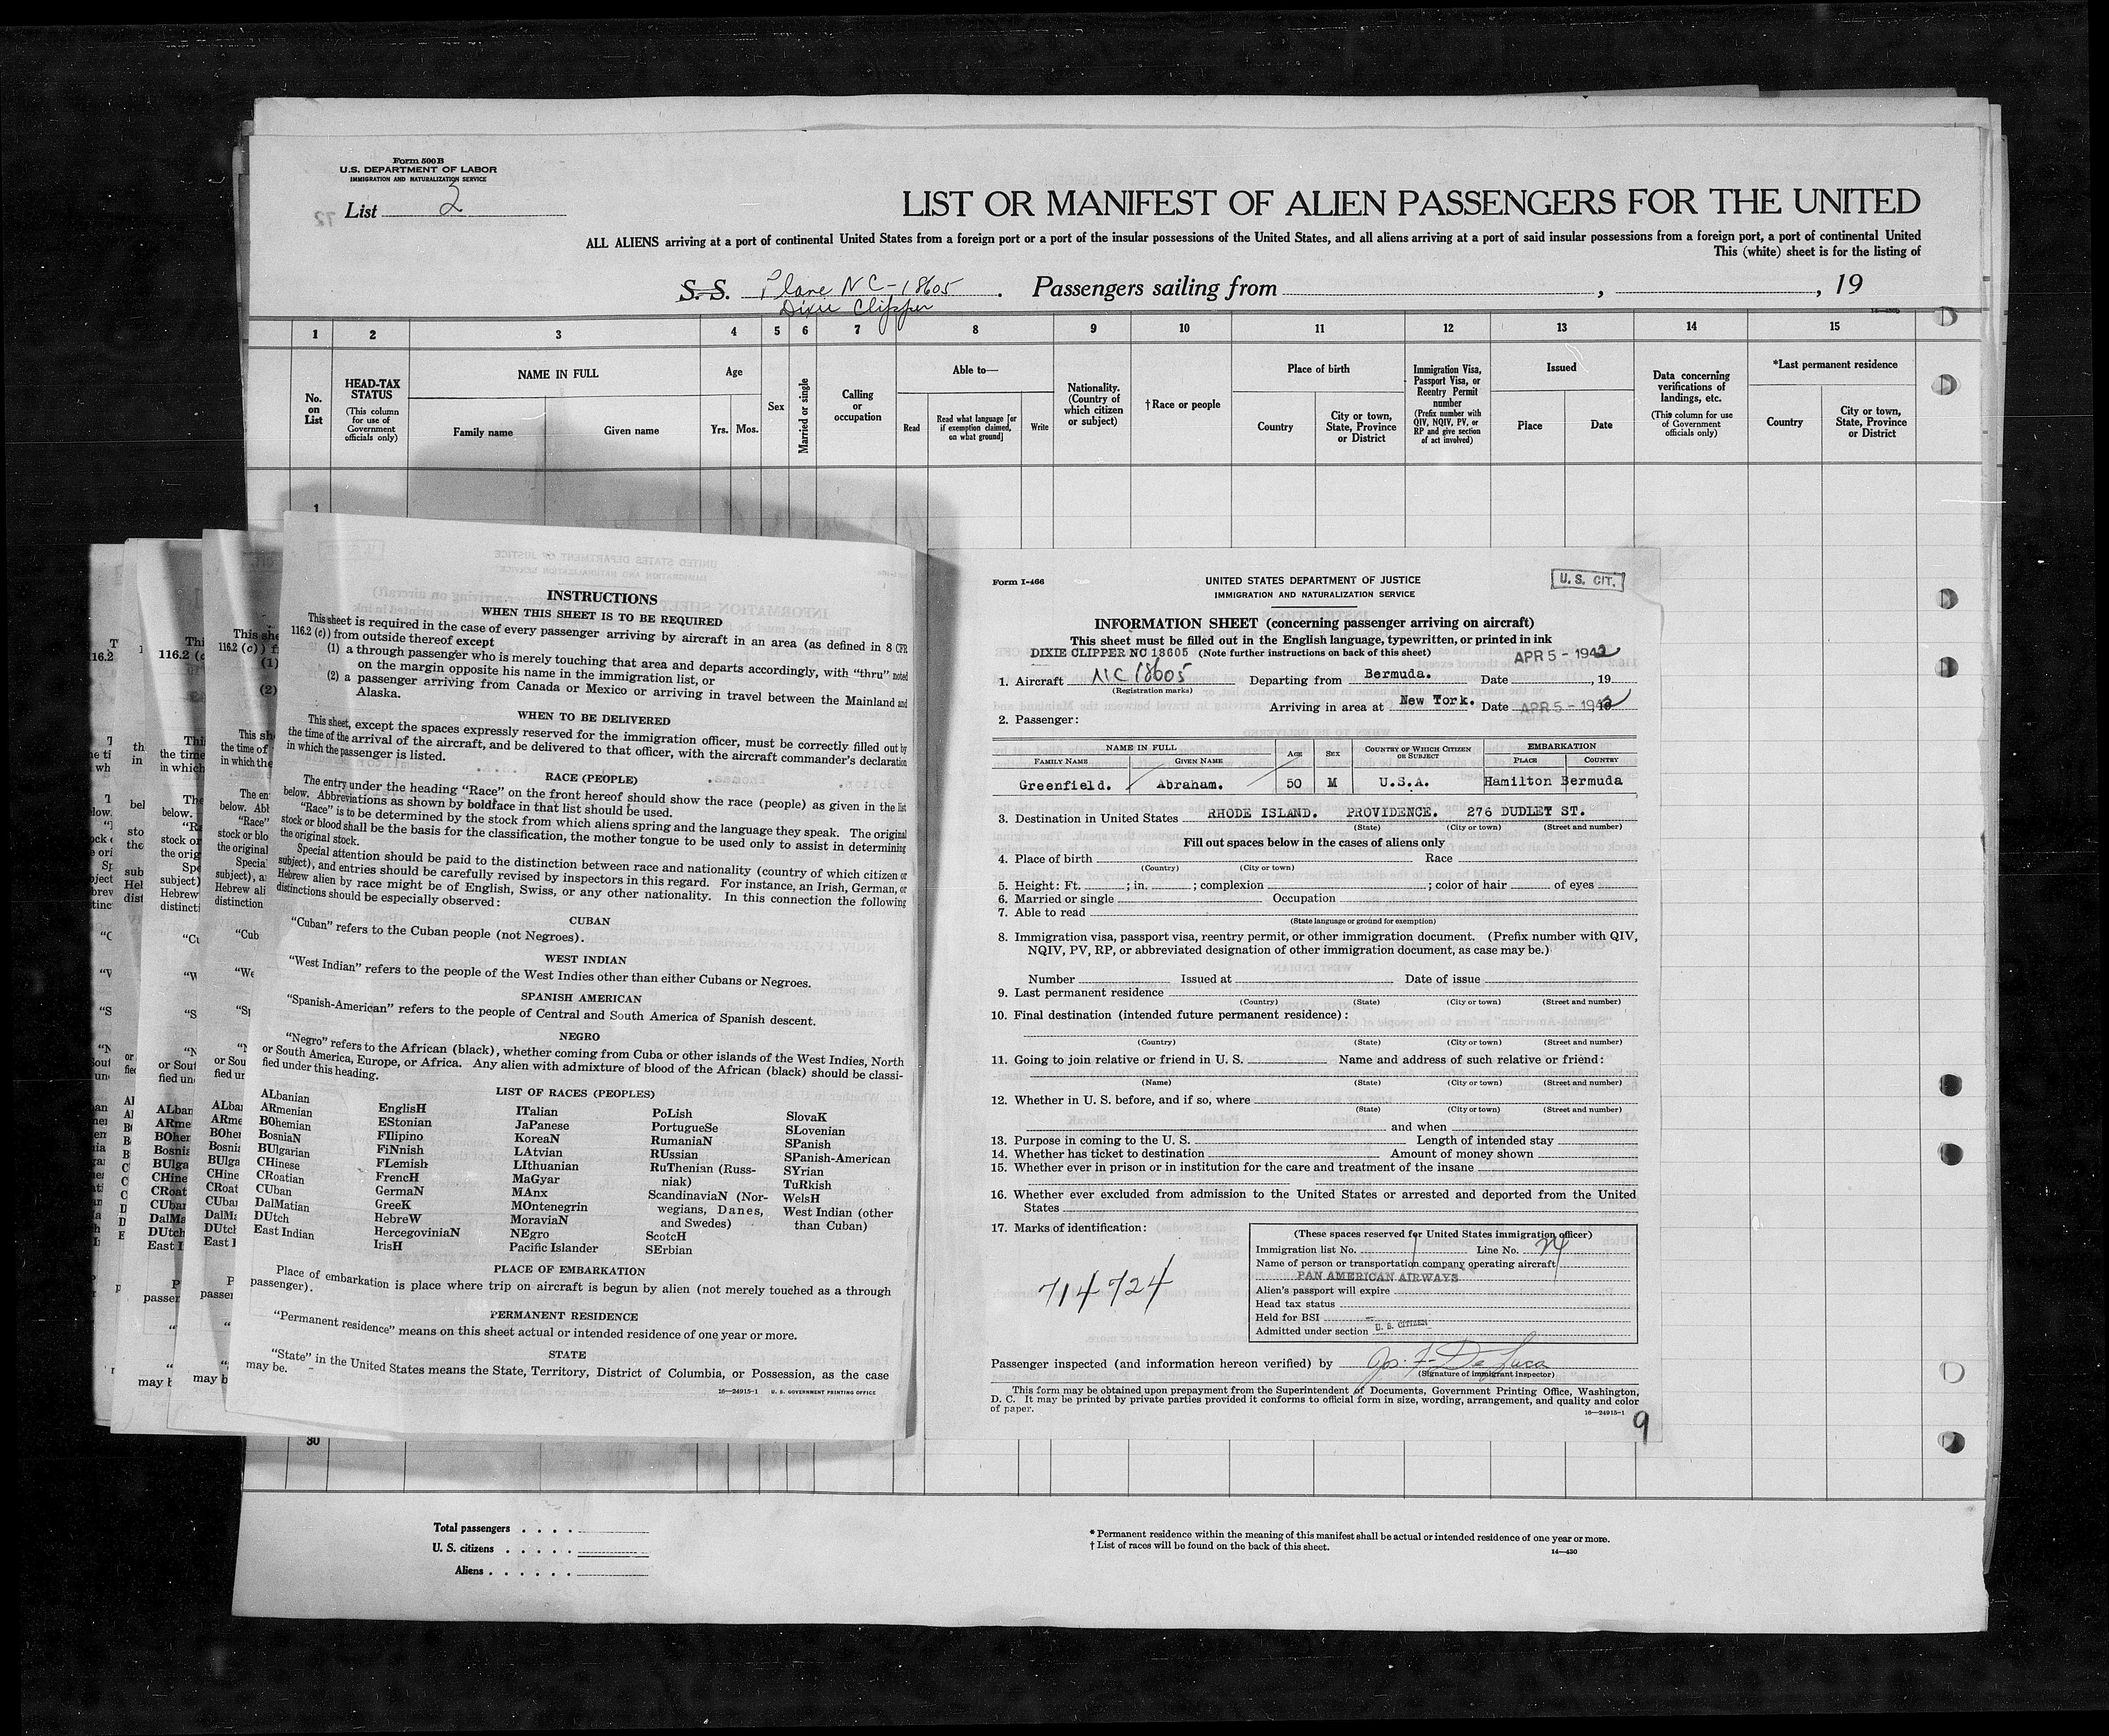 Form 500 B
U.S. DEPARTMENT OF LABOR
IMMIGRATION AND NATURALIZATION SERVICE
List 2
LIST OR MANIFEST OF ALIEN PASSENGERS FOR THE UNITED
ALL ALIENS arriving at a port of continental United States from a foreign port or a port of the insular possessions of the United States, and all aliens arriving at a port of said insular possessions from a foreign port, a port of continental United
This (white) sheet is for the listing of
S. S. Plane NC-18605 . Passengers sailing from , , 19
Dixie Clipper
1 2 3 4 5 6 7 8 9 10 11 12 13 14 15
No. on List
HEAD-TAX STATUS
(This column for use of Government officials only)
NAME IN FULL
Family name
Given name
Age
Yrs. Mos.
Sex
Married or single
Calling or occupation
Able to—
Read
Read what language [or if exemption claimed, on what ground]
Write
Nationality. (Country of which citizen or subject)
†Race or people
Place of birth
Country
City or town, State, Province or District
Immigration Visa, Passport Visa, or Reentry Permit number
(Prefix number with QIV, NQIV, PV, or RP and give section of act involved)
Issued
Place
Date
Data concerning verifications of landings, etc.
(This column for use of Government officials only)
*Last permanent residence
Country
City or town, State, Province or District
1
INSTRUCTIONS
WHEN THIS SHEET IS TO BE REQUIRED
This sheet is required in the case of every passenger arriving by aircraft in an area (as defined in 8 CFR
116.2 (c)) from outside thereof except
(1) a through passenger who is merely touching that area and departs accordingly, with "thru" noted
on the margin opposite his name in the immigration list, or
(2) a passenger arriving from Canada or Mexico or arriving in travel between the Mainland and
Alaska.
WHEN TO BE DELIVERED
This sheet, except the spaces expressly reserved for the immigration officer, must be correctly filled out by
the time of the arrival of the aircraft, and be delivered to that officer, with the aircraft commander's declaration
in which the passenger is listed.
RACE (PEOPLE)
The entry under the heading "Race" on the front hereof should show the race (people) as given in the list
below. Abbreviations as shown by boldface in that list should be used.
"Race" is to be determined by the stock from which aliens spring and the language they speak. The original
stock or blood shall be the basis for the classification, the mother tongue to be used only to assist in determining
the original stock.
Special attention should be paid to the distinction between race and nationality (country of which citizen or
subject), and entries should be carefully revised by inspectors in this regard. For instance, an Irish, German, or
Hebrew alien by race might be of English, Swiss, or any other nationality. In this connection the following
distinctions should be especially observed:
CUBAN
"Cuban" refers to the Cuban people (not Negroes).
WEST INDIAN
"West Indian" refers to the people of the West Indies other than either Cubans or Negroes.
SPANISH AMERICAN
"Spanish-American" refers to the people of Central and South America of Spanish descent.
NEGRO
"Negro" refers to the African (black), whether coming from Cuba or other islands of the West Indies, North
or South America, Europe, or Africa. Any alien with admixture of blood of the African (black) should be classi-
fied under this heading.
LIST OF RACES (PEOPLES)
ALbanian
ARmenian
BOhemian
BosniaN
BUlgarian
CHinese
CRoatian
CUban
DalMatian
DUtch
East Indian
EnglisH
EStonian
FIlipino
FiNnish
FLemish
FrencH
GermaN
GreeK
HebreW
HercegoviniaN
IrisH
ITalian
JaPanese
KoreaN
LAtvian
LIthuanian
MaGyar
MAnx
MOntenegrin
MoraviaN
NEgro
Pacific Islander
PoLish
PortugueSe
RumaniaN
RUssian
RuThenian (Russ-
niak)
ScandinaviaN (Nor-
wegians, Danes,
and Swedes)
ScotcH
SErbian
SlovaK
SLovenian
SPanish
SPanish-American
SYrian
TuRkish
WelsH
West Indian (other
than Cuban)
PLACE OF EMBARKATION
Place of embarkation is place where trip on aircraft is begun by alien (not merely touched as a through
passenger).
PERMANENT RESIDENCE
"Permanent residence" means on this sheet actual or intended residence of one year or more.
STATE
"State" in the United States means the State, Territory, District of Columbia, or Possession, as the case
may be.
16—24915-1 U. S. GOVERNMENT PRINTING OFFICE
Form I-466
UNITED STATES DEPARTMENT OF JUSTICE
IMMIGRATION AND NATURALIZATION SERVICE
U. S. CIT.
INFORMATION SHEET (concerning passenger arriving on aircraft)
This sheet must be filled out in the English language, typewritten, or printed in ink
DIXIE CLIPPER NC 18605 (Note further instructions on back of this sheet) APR 5 - 1942
1. Aircraft NC 18605 Departing from Bermuda. Date , 19
(Registration marks)
Arriving in area at New York. Date APR 5 - 1942
2. Passenger:
NAME IN FULL
FAMILY NAME GIVEN NAME
AGE SEX
COUNTRY OF WHICH CITIZEN OR SUBJECT
EMBARKATION
PLACE COUNTRY
Greenfield. Abraham. 50 M U.S.A. Hamilton Bermuda
3. Destination in United States RHODE ISLAND. PROVIDENCE. 276 DUDLEY ST.
(State) (City or town) (Street and number)
Fill out spaces below in the cases of aliens only
4. Place of birth Race
(Country) (City or town)
5. Height: Ft. ; in. ; complexion ; color of hair of eyes
6. Married or single Occupation
7. Able to read
(State language or ground for exemption)
8. Immigration visa, passport visa, reentry permit, or other immigration document. (Prefix number with QIV,
NQIV, PV, RP, or abbreviated designation of other immigration document, as case may be.)
Number Issued at Date of issue
9. Last permanent residence
(Country) (State) (City or town) (Street and number)
10. Final destination (intended future permanent residence):
(Country) (State) (City or town) (Street and number)
11. Going to join relative or friend in U. S. Name and address of such relative or friend:
(Name) (State) (City or town) (Street and number)
12. Whether in U. S. before, and if so, where
(State) (City or town) (Street and number)
and when
13. Purpose in coming to the U. S. Length of intended stay
14. Whether has ticket to destination Amount of money shown
15. Whether ever in prison or in institution for the care and treatment of the insane
16. Whether ever excluded from admission to the United States or arrested and deported from the United
States
17. Marks of identification:
714724
(These spaces reserved for United States immigration officer)
Immigration list No. 1 Line No.
Name of person or transportation company operating aircraft
PAN AMERICAN AIRWAYS
Alien's passport will expire
Head tax status
Held for BSI
Admitted under section U. S. CITIZEN
Passenger inspected (and information hereon verified) by Jos. F. De Luca
(Signature of immigrant inspector)
This form may be obtained upon prepayment from the Superintendent of Documents, Government Printing Office, Washington,
D. C. It may be printed by private parties provided it conforms to official form in size, wording, arrangement, and quality and color
of paper.
16—24915-1
9
30
Total passengers . . . .
U. S. citizens . . . . .
Aliens . . . . . .
* Permanent residence within the meaning of this manifest shall be actual or intended residence of one year or more.
† List of races will be found on the back of this sheet.
14—430